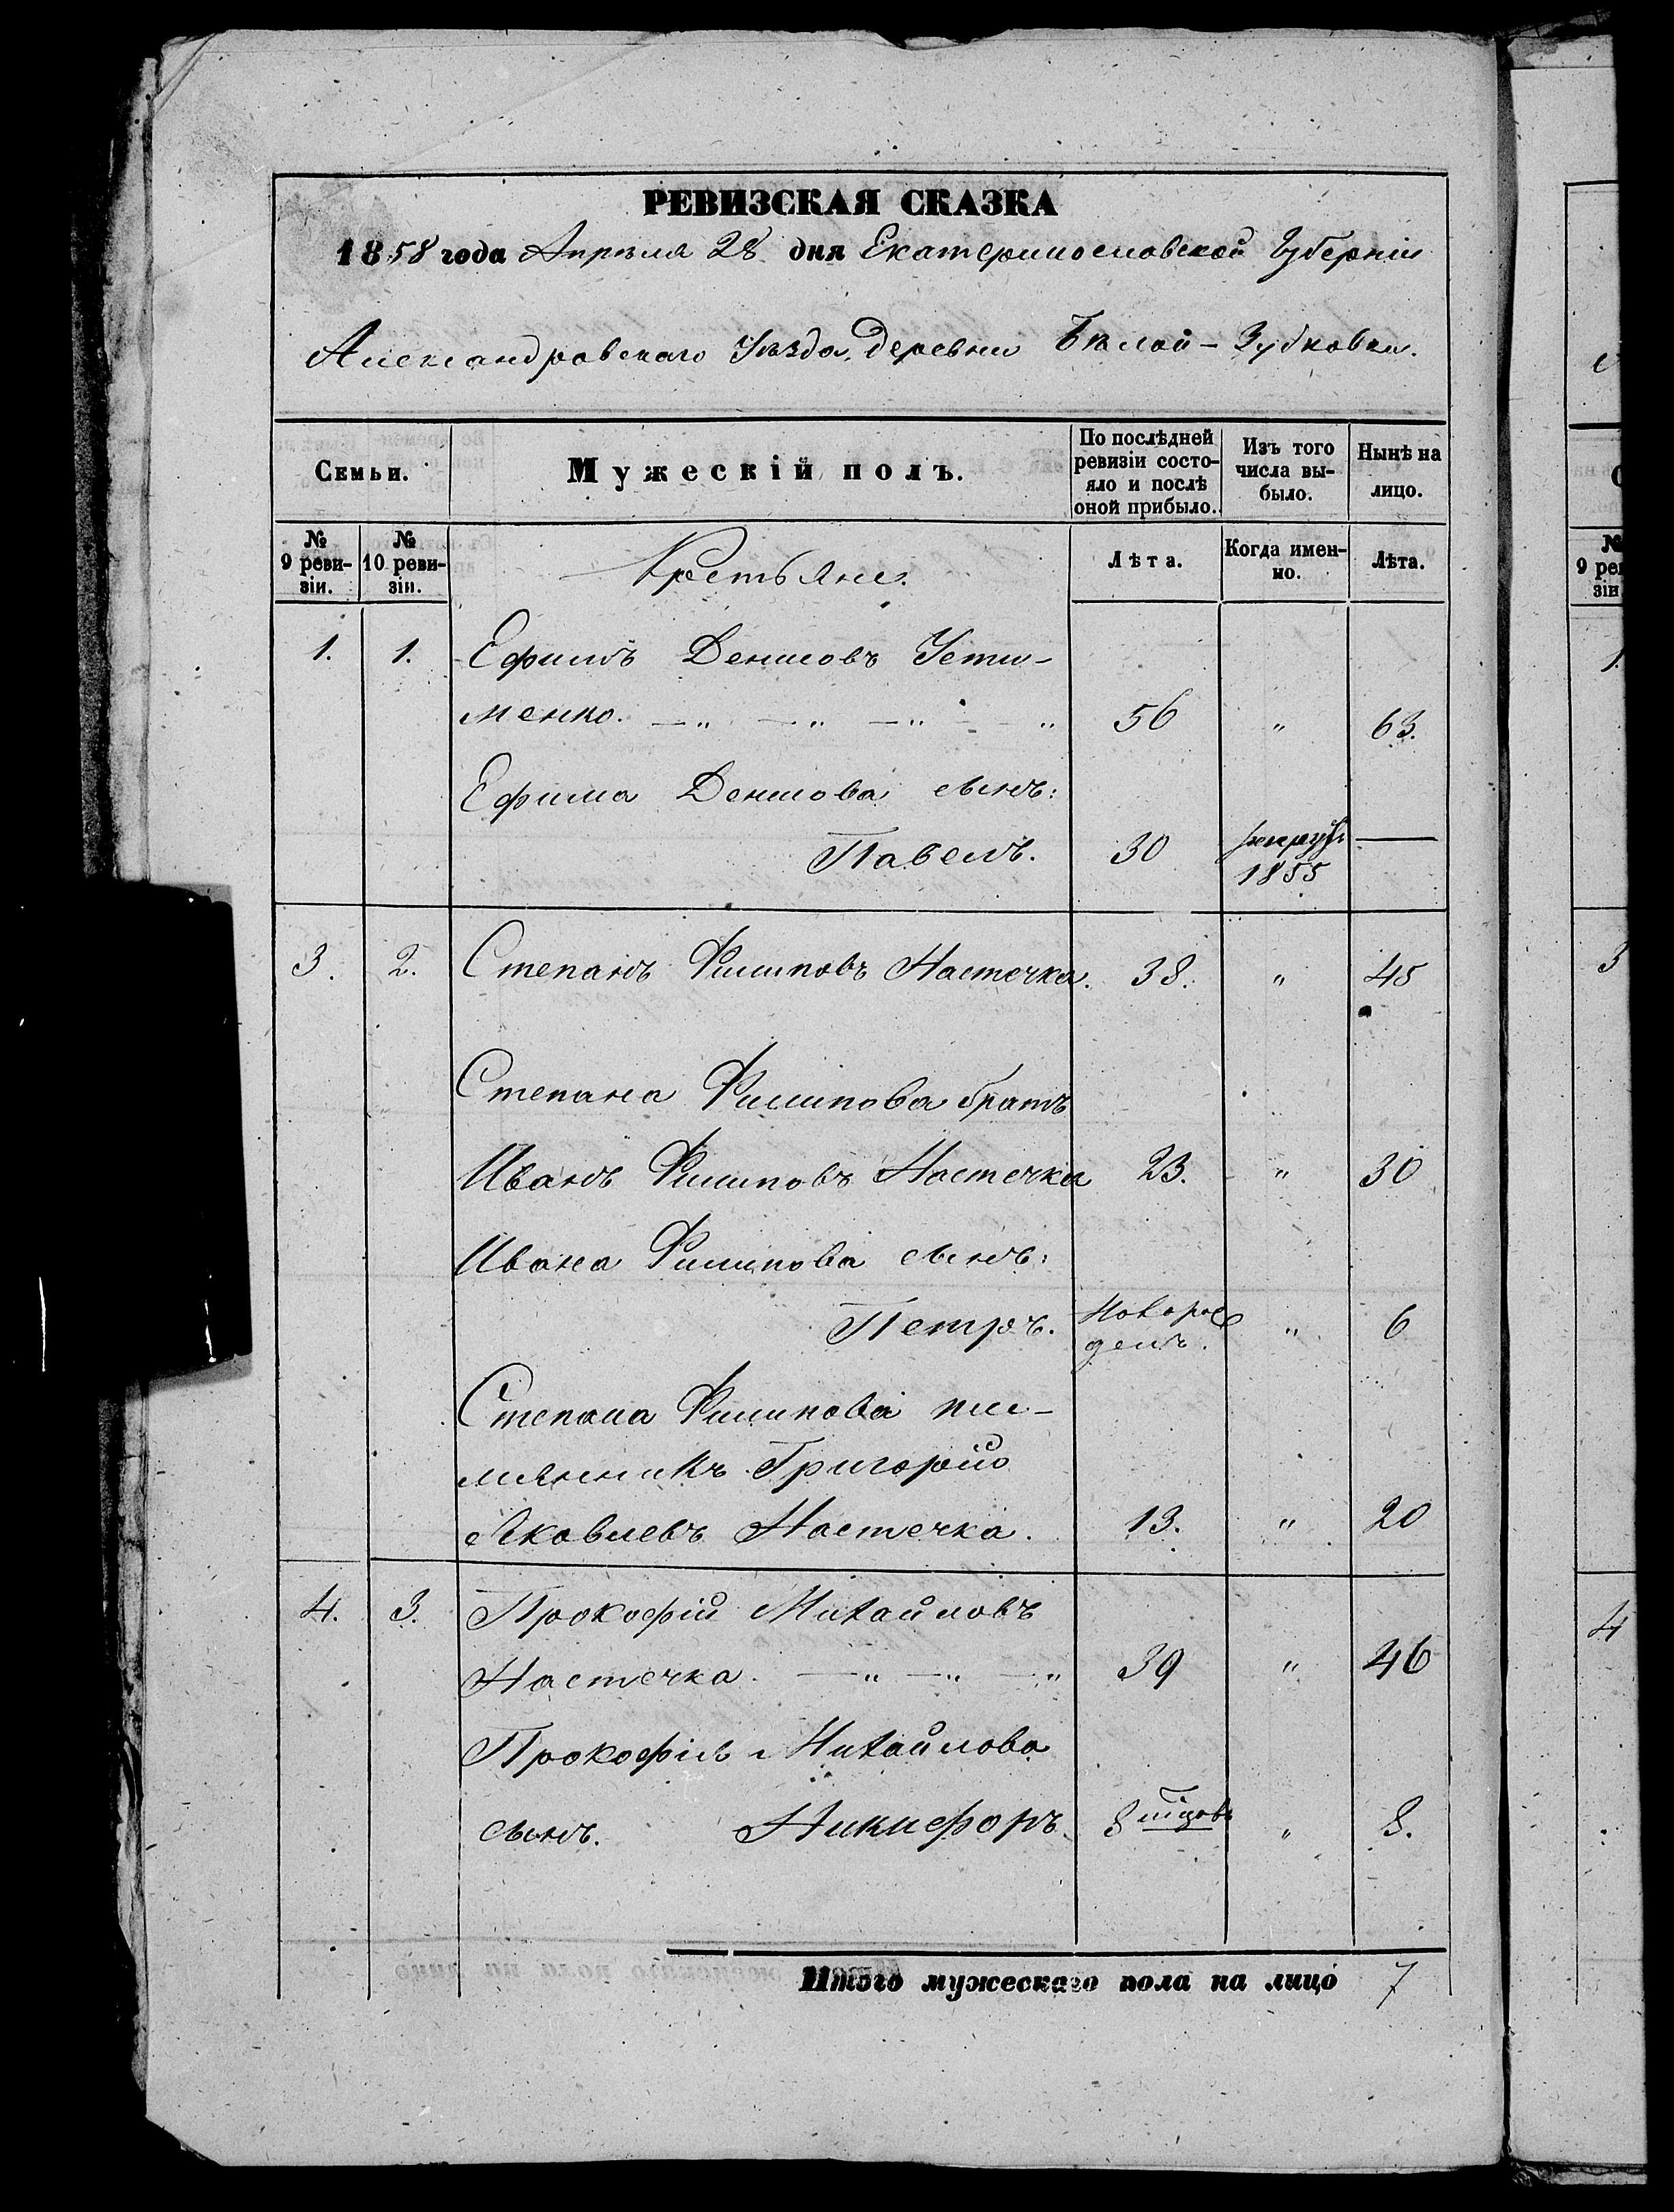 РЕВИЗСКАЯ СКАЗКА
1858 года Апрѣля 28 дня Екатеринославской Губерніи
Александровскаго Уѣзда, Деревни Бѣлой-Зубковки.
Семьи.
Мужескій полъ.
По послѣдней ревизіи состо-
яло и послѣ оной прибыло.
Изъ того числа вы-
было.
Нынѣ на лицо.
№ 9 реви-
зіи.
№ 10 реви-
зіи.
Крестьяне.
Лѣта.
Когда имен-
но.
Лѣта.
1. 1. Ефимъ Денисовъ Усти-
менко. —„ —„ —„ - „ 56 „ 63.
Ефима Денисова сынъ:
Павелъ. 30 1855 —
3. 2. Степанъ Филиповъ Настечка. 38. „ 45
Степана Филипова братъ
Иванъ Филиповъ Настечка 23. „ 30
Ивана Филипова сынъ:
Петръ. новорож
денъ. „ 6
Степана Филипова пле-
мянникъ Григорій
Яковлевъ Настечка. 13. „ 20
4. 3. Прокофій Михайловъ
Настечка. —„ —„ —„ 39 „ 46
Прокофія Михайлова
сынъ. Никифоръ. 8 „ 8.
Итого мужескаго пола на лицо 7
№ 9 рев
зіи
1.
3
4